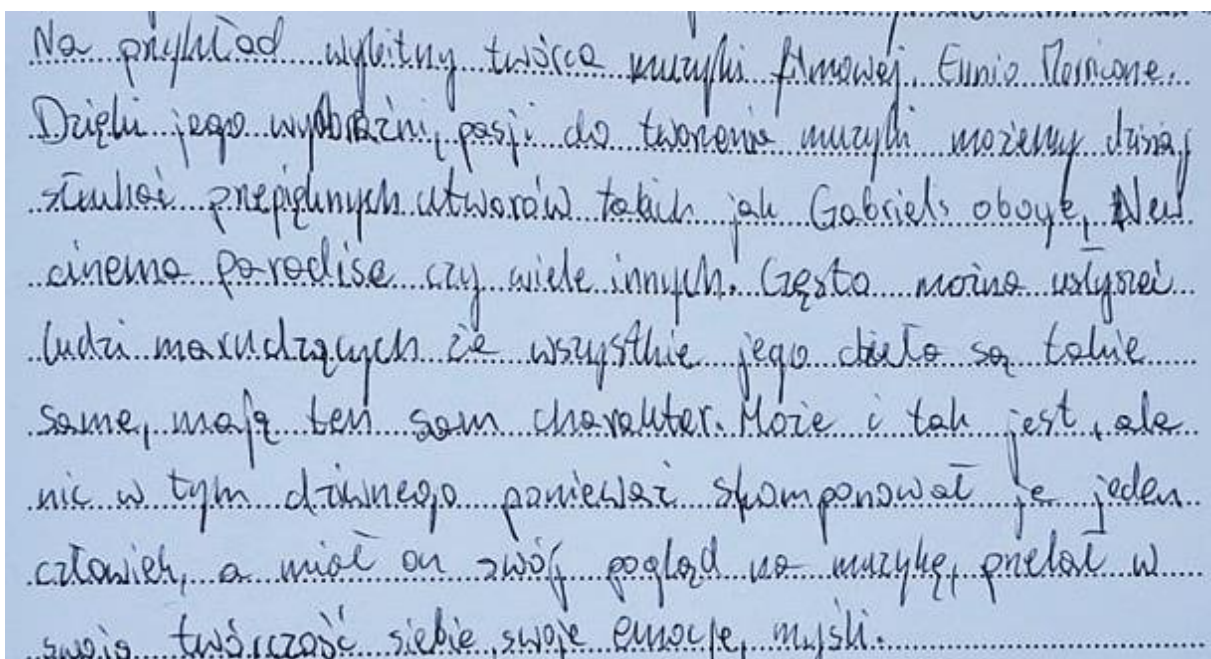 Na przykład wybitny twórca muzyki filmowej Ennio Morricone.
Dzięki jego wyobraźni, pasji do tworzenia muzyki możemy dzisiaj
słuchać przepięknych utworów takich jak Gabriels oboye, New
cinema paradise czy wiele innych. Często można usłyszeć
ludzi marudzących że wszystkie jego dzieła są takie
same, mają ten sam charakter. Może i tak jest, ale
nic w tym dziwnego ponieważ skomponował je jeden
człowiek, a miał on swój pogląd na muzykę, przelał w
swoją twórczość siebie, swoje emocje, myśli.